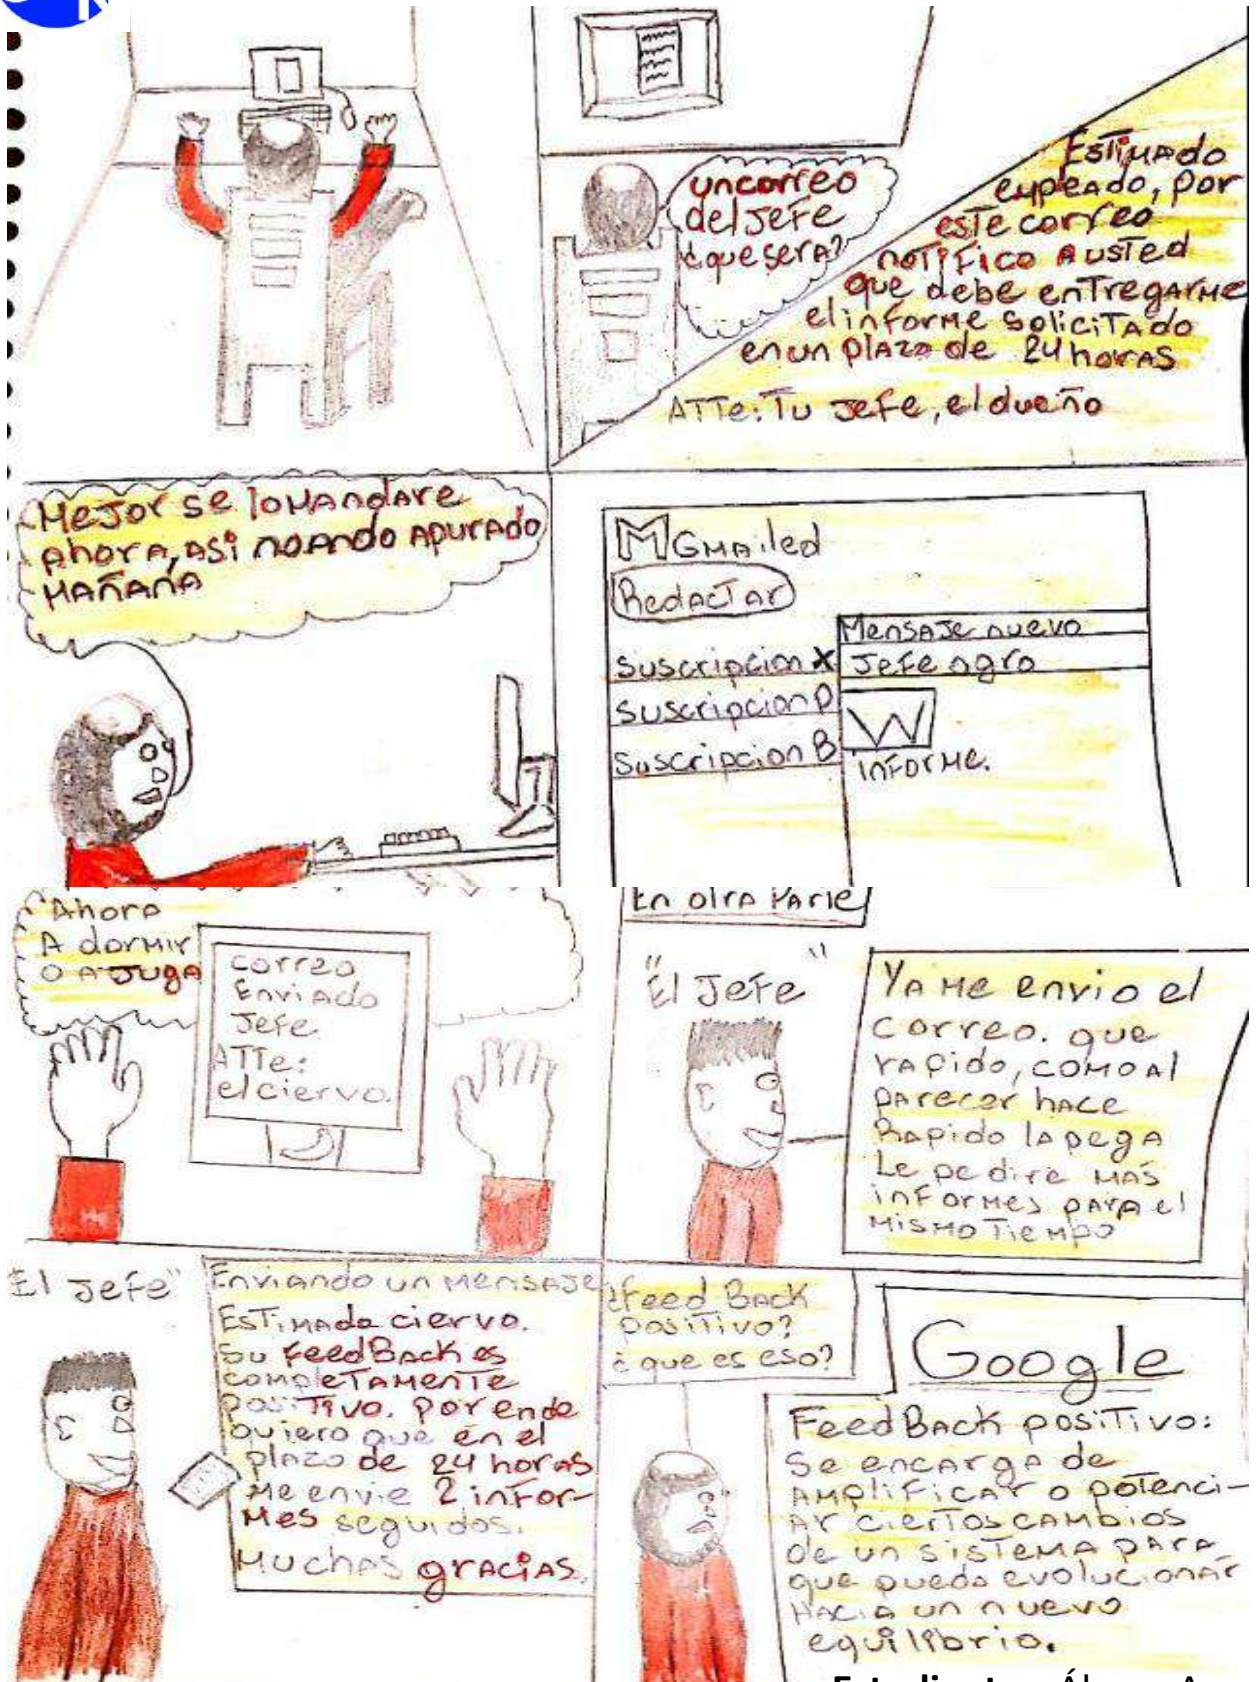 un correo
del jefe
¿que sera?
Estimado
empleado, por
este correo
notifico a usted
que debe entregarme
el informe solicitado
en un plazo de 24 horas
Atte: Tu jefe, el dueño
Mejor se lo mandare
ahora, asi no ando apurado
mañana
M Gmailed
Redactar
Mensaje nuevo
Suscripcion X
Jefe agro
Suscripcion D
W
Suscripcion B
informe.
Ahora
A dormir
o a juga
correo
Enviado
Jefe
ATTe:
el ciervo.
En otra parte
"El Jefe"
Ya me envio el
correo. que
rapido, como al
parecer hace
Rapido la pega
Le pedire mas
informes para el
mismo tiempo
El jefe"
Enviando un mensaje
Estimado ciervo.
su feedBack es
completamente
positivo. por ende
quiero que en el
plazo de 24 horas
me envie 2 infor-
mes seguidos.
Muchas gracias.
¿feed Back
positivo?
¿que es eso?
Google
FeedBack positivo:
Se encarga de
amplificar o potenci-
ar ciertos cambios
de un sistema para
que pueda evolucionar
hacia un nuevo
equilibrio.